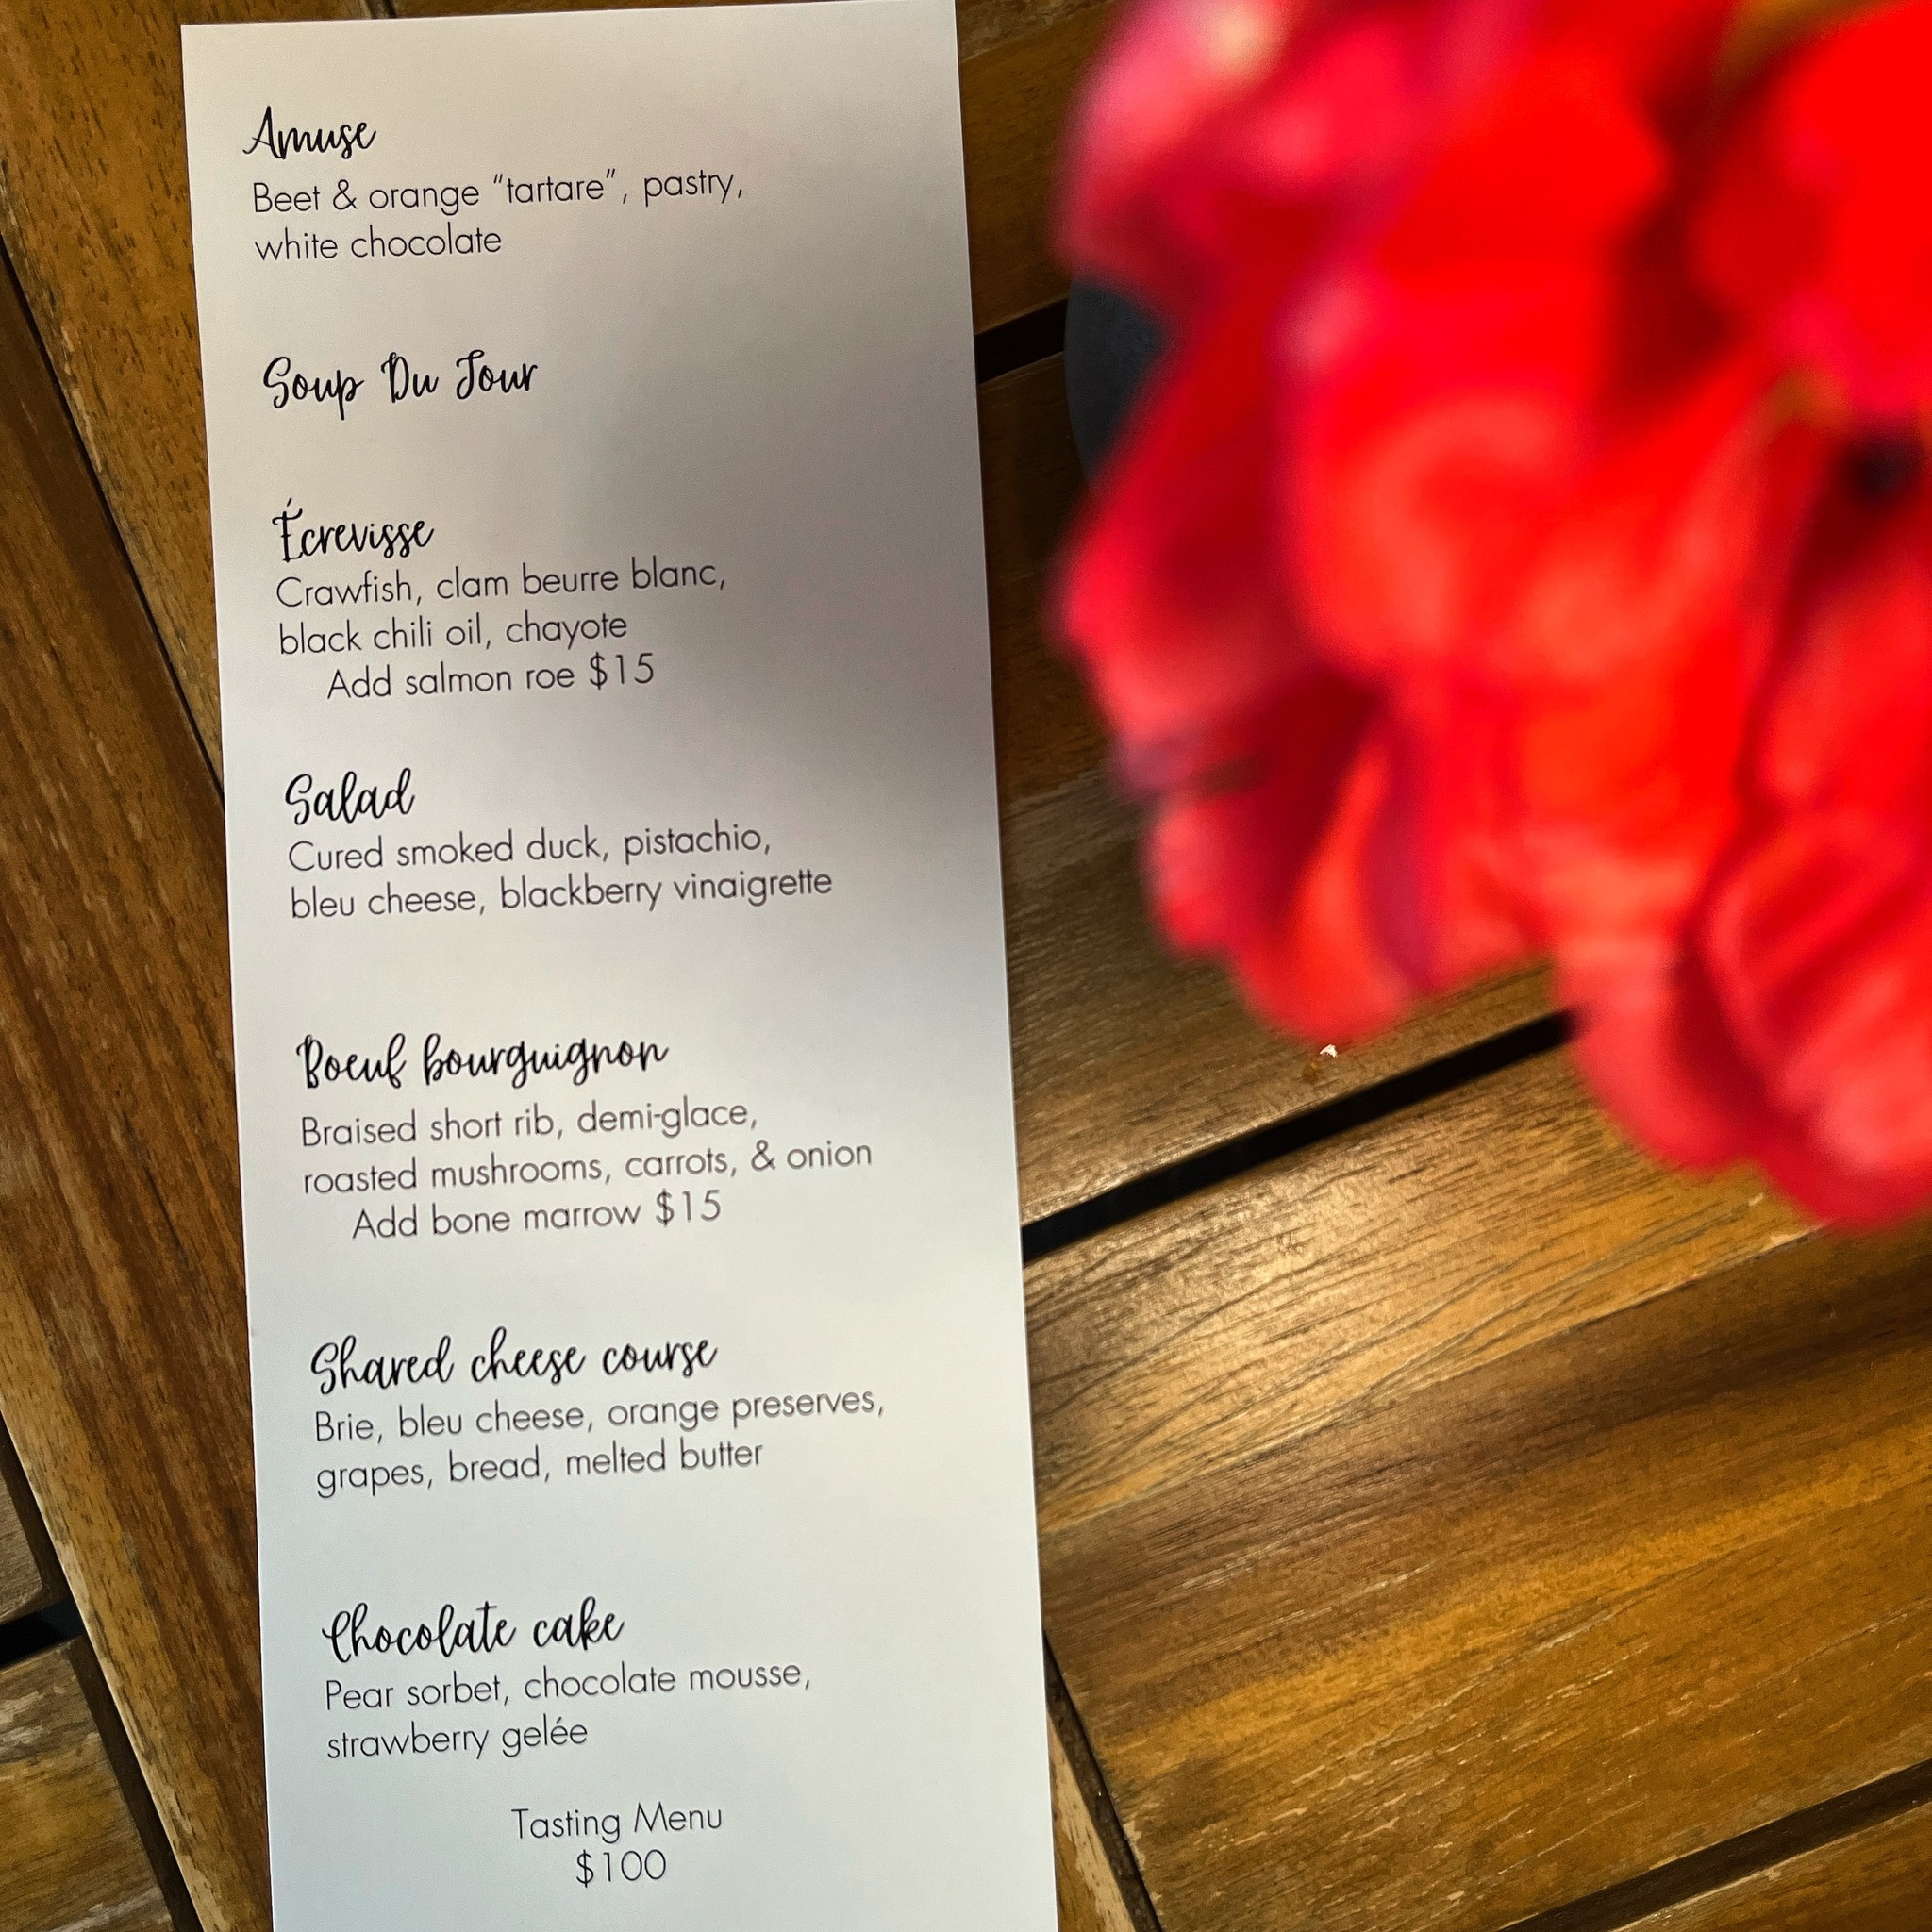 Amuse
Beet & orange "tartare", pastry,
white chocolate
Soup Du Jour
Écrevisse
Crawfish, clam beurre blanc,
black chili oil, chayote
Add salmon roe $15
Salad
Cured smoked duck, pistachio,
bleu cheese, blackberry vinaigrette
Boeuf bourguignon
Braised short rib, demi-glace,
roasted mushrooms, carrots, & onion
Add bone marrow $15
Shared cheese course
Brie, bleu cheese, orange preserves,
grapes, bread, melted butter
Chocolate cake
Pear sorbet, chocolate mousse,
strawberry gelée
Tasting Menu
$100